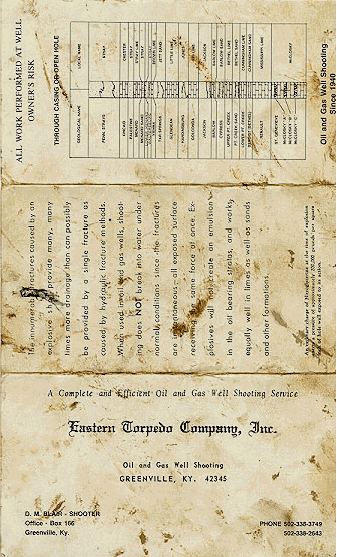 ALL WORK PERFORMED AT WELL
OWNER'S RISK
THROUGH CASING OR OPEN HOLE
GEOLOGICAL NAME
LOCAL NAME
PENN STRAYS
STRAY
KINCAID
CHESTER
PALESTINE
MENARD
MENARD SAND
TAR SPRINGS
JETT SAND
GLENDEAN
LITTLE LIME
HARDINSBURG
JONES
GOLCONDA
JACKSON
JACKSON
BARLOW
BARLOW LIME
CYPRESS
BARLOW SAND
BETHEL LIME
PT. CREEK SAND
BETHEL SAND
LOWER PT. CREEK
RENAULT
MISSISSIPPI LIME
ST. GENEVIEVE
McCLOSKY "A"
McCLOSKY "B"
McCLOSKY "C"
McCLOSKY
Oil and Gas Well Shooting
Since 1940
The innumerable fractures caused by an
explosive shot provide many, many
times more drainage than can possibly
be provided by a single fracture as
caused by hydraulic fracture methods.
When used in oil and gas wells, shoot-
ing does NOT break into water under
normal conditions since the fractures
are instantaneous — all exposed surface
receiving the same force at once. Ex-
plosives will not create an emulsion
in the oil bearing stratas, and works
equally well in limes as well as sands
and other formations.
An regular charge of Nitroglycerine at the time of explosion
exerts a pressure of approximately
inch of hole wall exposed to its action.
A Complete and Efficient Oil and Gas Well Shooting Service
Eastern Torpedo Company, Inc.
Oil and Gas Well Shooting
GREENVILLE, KY. 42345
D. M. BLAIR - SHOOTER
Office - Box 166
Greenville, Ky.
PHONE 502-338-3749
502-338-2643